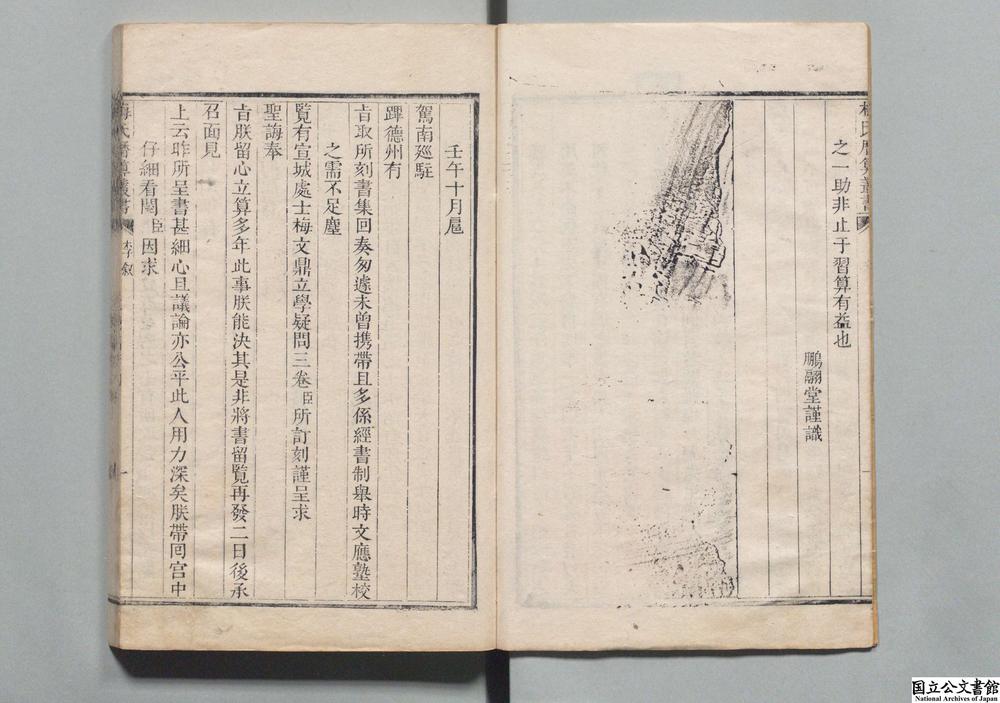 之一助非止于習算有益也
鵬翮堂謹識
壬午十月扈
駕南廵駐
蹕德州有
㫖取所刻書集回奏匆遽未曾携帶且多係經書制舉時文應塾校
之需不足塵
覧有宣城處士梅文鼎立學疑問三卷臣所訂刻謹呈求
聖誨奉
㫖朕留心立算多年此事朕能決其是非將書留覧再發二日後承
召面見
上云昨所呈書甚細心且議論亦公平此人用力深矣朕帶囘宫中
仔細看閱臣因求
梅氏曆算叢書
李叙
国立公文書館
National Archives of Japan